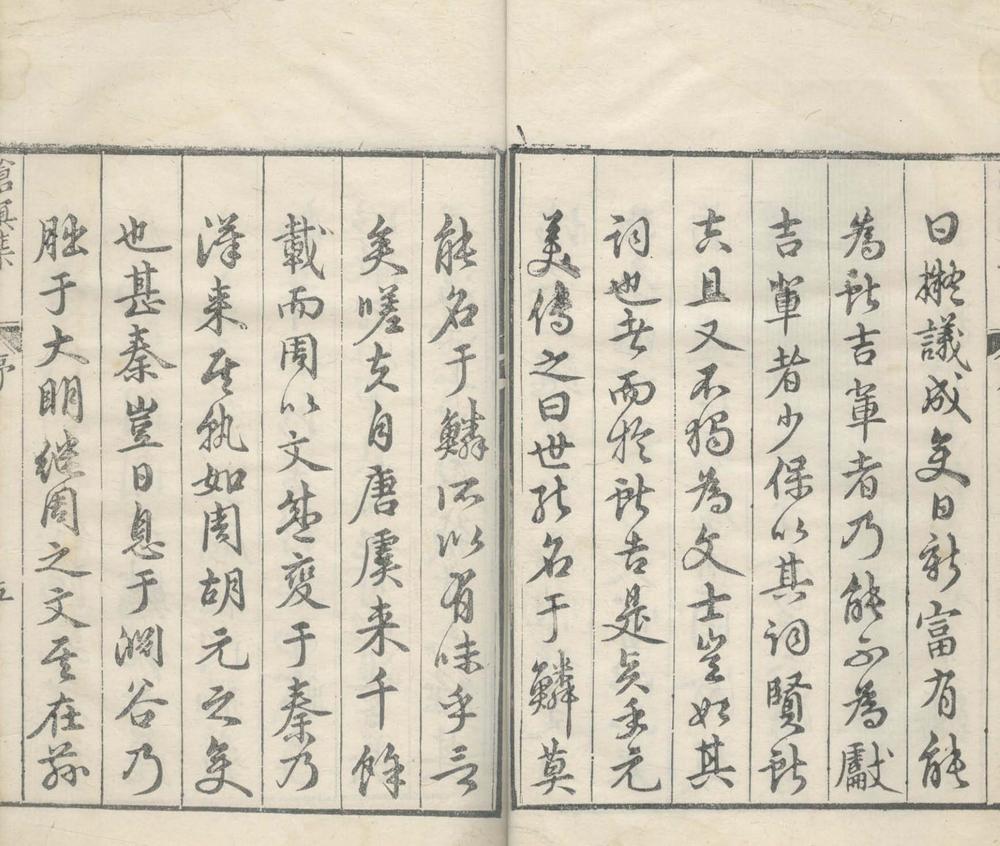 日擬議成變日新富有能
為獻吉輩者乃能不為獻
吉輩者少保以其詞賢獻
吉且又不獨為文士豈其
詞也者而於獻吉是元
美傳之曰世能名于鱗莫
能名于鱗所以有味乎言
矣嗟夫自唐虞來千餘
載而周以文盛變于秦乃
漢來其孰如周胡元之變
也甚秦豈日息于澗谷乃
朏于大明繼周之文其在茲
滄溟集 序 五